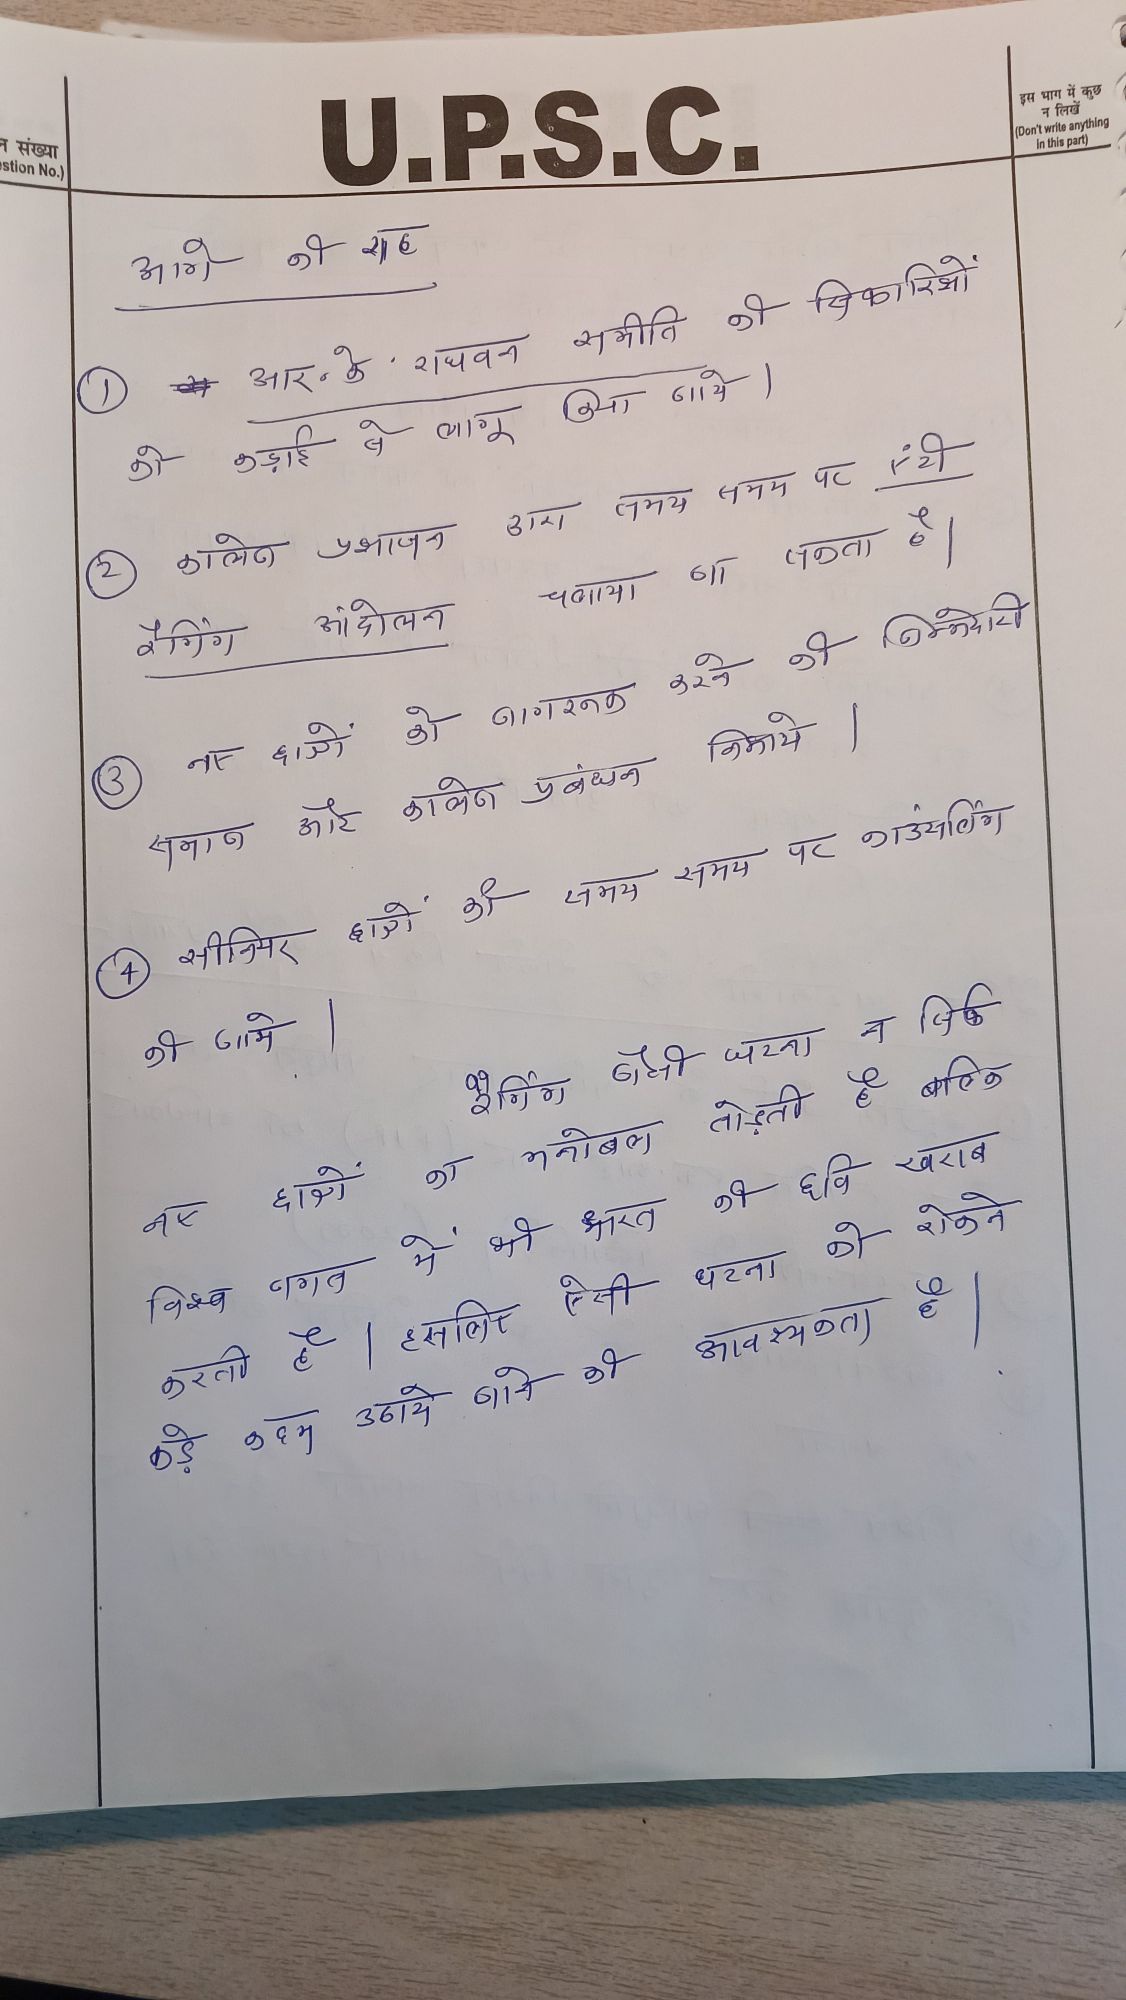 U.P.S.C.
न संख्या
stion No.)
इस भाग में कुछ
न लिखें
(Don't write anything
in this part)
आगे की राह
① आर. के. राघवन समीति की सिफारिशों
को कड़ाई से लागू किया जाये।
② कालेज प्रशासन द्वारा समय समय पर एंटी
रैगिंग आंदोलन चलाया जा सकता है।
③ नए छात्रों को जागरूक करने की जिम्मेदारी
समाज और कालेज प्रबंधन निभाये।
④ सीनियर छात्रों की समय समय पर काउंसलिंग
की जाये।
रैगिंग जैसी घटना न सिर्फ
नए छात्रों का मनोबल तोड़ती है बल्कि
विश्व जगत में भी भारत की छवि खराब
करती है। इसलिए ऐसी घटना को रोकने
कड़े कदम उठाये जाने की आवश्यकता है।